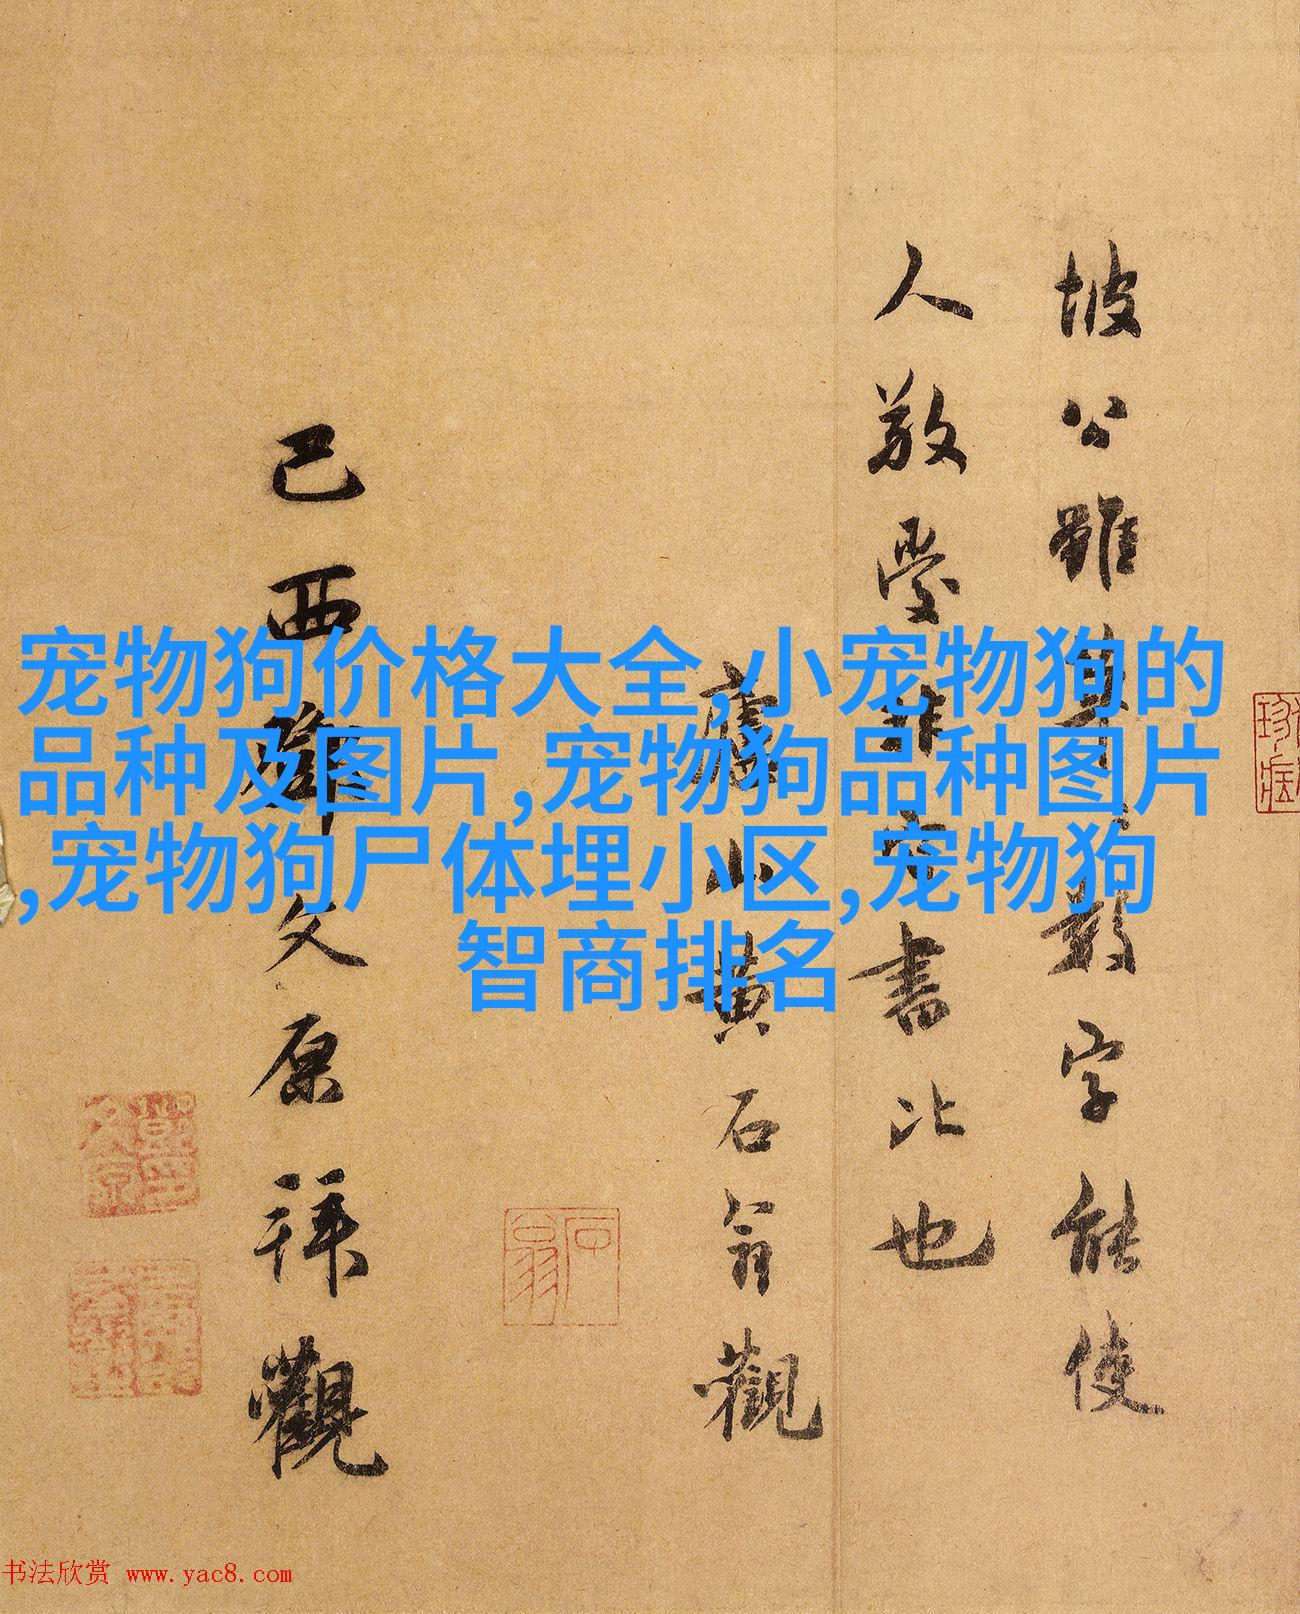 宠物狗价格大全,小宠物狗的
品种及图片,宠物狗品种图片
,宠物狗尸体埋小区,宠物狗
智商排名
坡公雖數字能使
人敬愛非書比也
廬山黄石翁觀
己酉鄧文原拜觀
石翁
书法欣赏 www.yac8.com